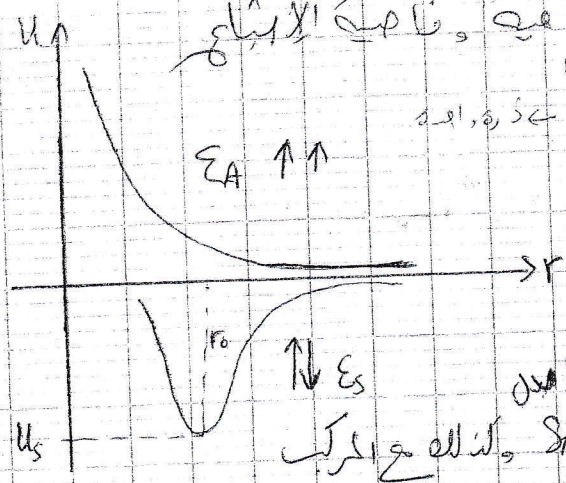 U
عيه وخاصية الإشباع
ذرة واحدة
ε_A ↑↑
r
r₀
↑↓ ε_s
U_s
وكذلك مع المركب